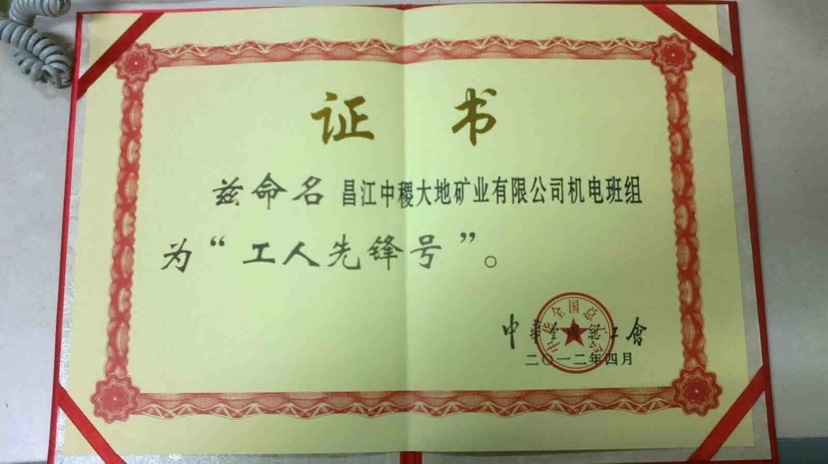 证书
兹命名 昌江中稷大地矿业有限公司机电班组
为“工人先锋号”。
中华全国总工會
二〇一二年四月